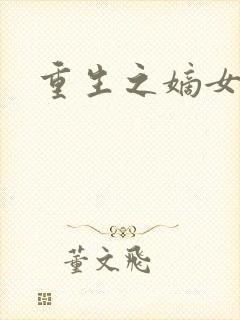 重生之嫡女
董文飛